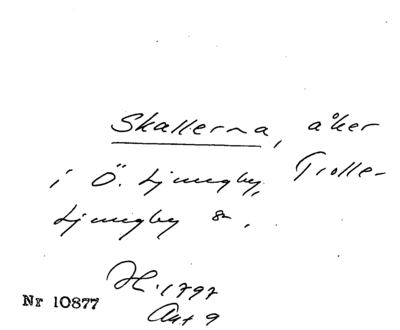 Skallerna, åker
i Ö. Ljungby, Trolle-
Ljungby sn.
H. 1797
Akt 9
Nr 10877